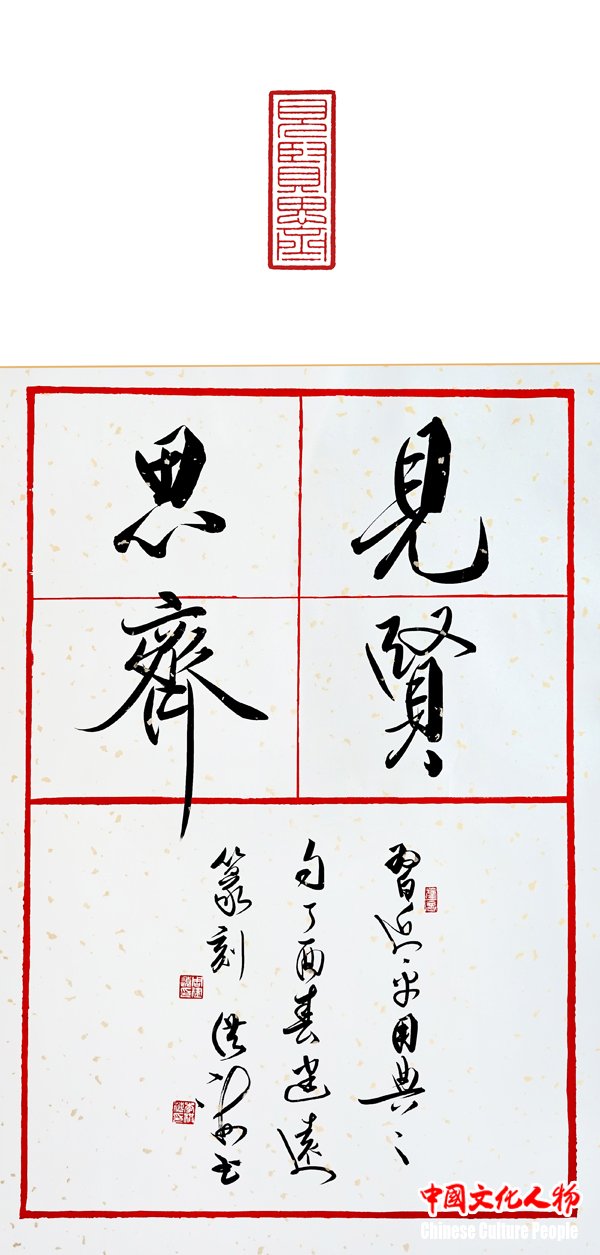 見賢思齊
見賢
思齊
習近平用典之
句丁酉春建遠
篆刻 洪 書
中國文化人物
Chinese Culture People